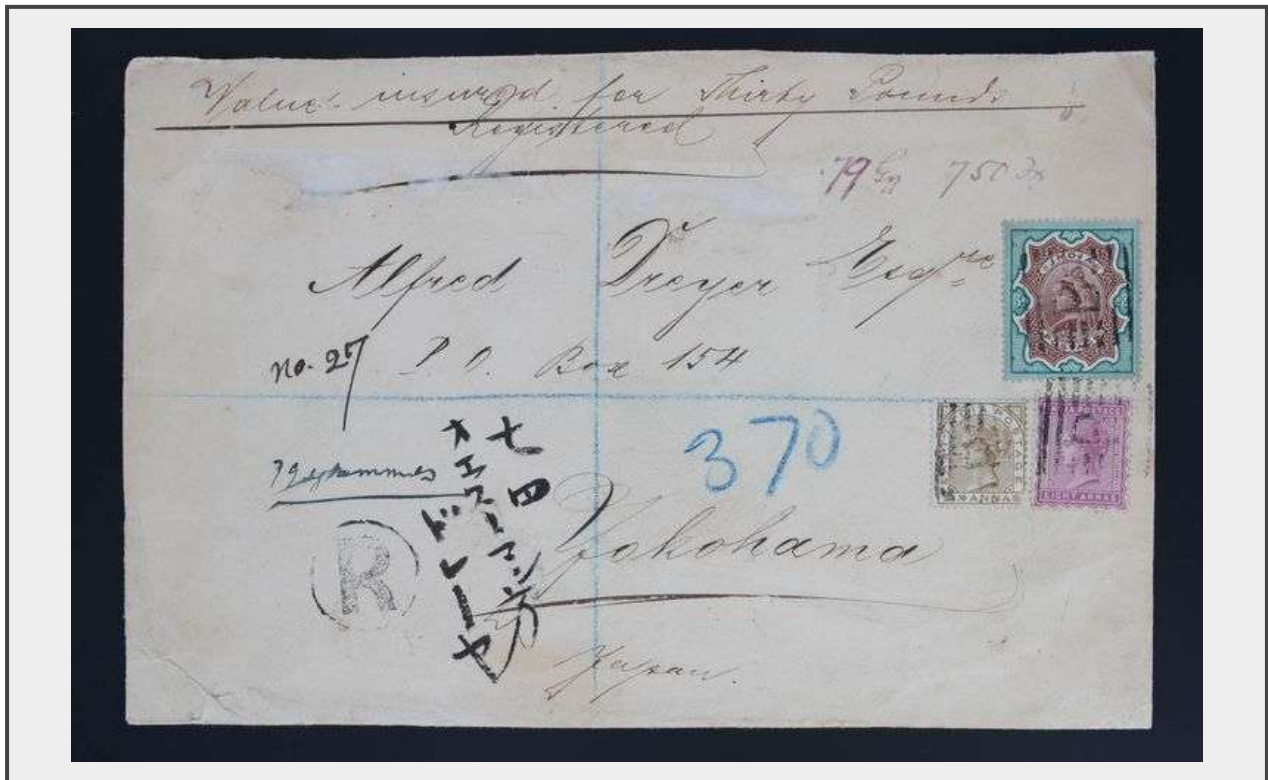 Value insured for Thirty Pounds
Registered
79 750
Alfred Dreyer Esqre
No. 27 P.O. Box 154
370
79 grammes
七四
オエスーマン方
ドレーヤ
R
Yokohama
Japan.
POSTAGE
ANNAS
EIGHT ANNAS